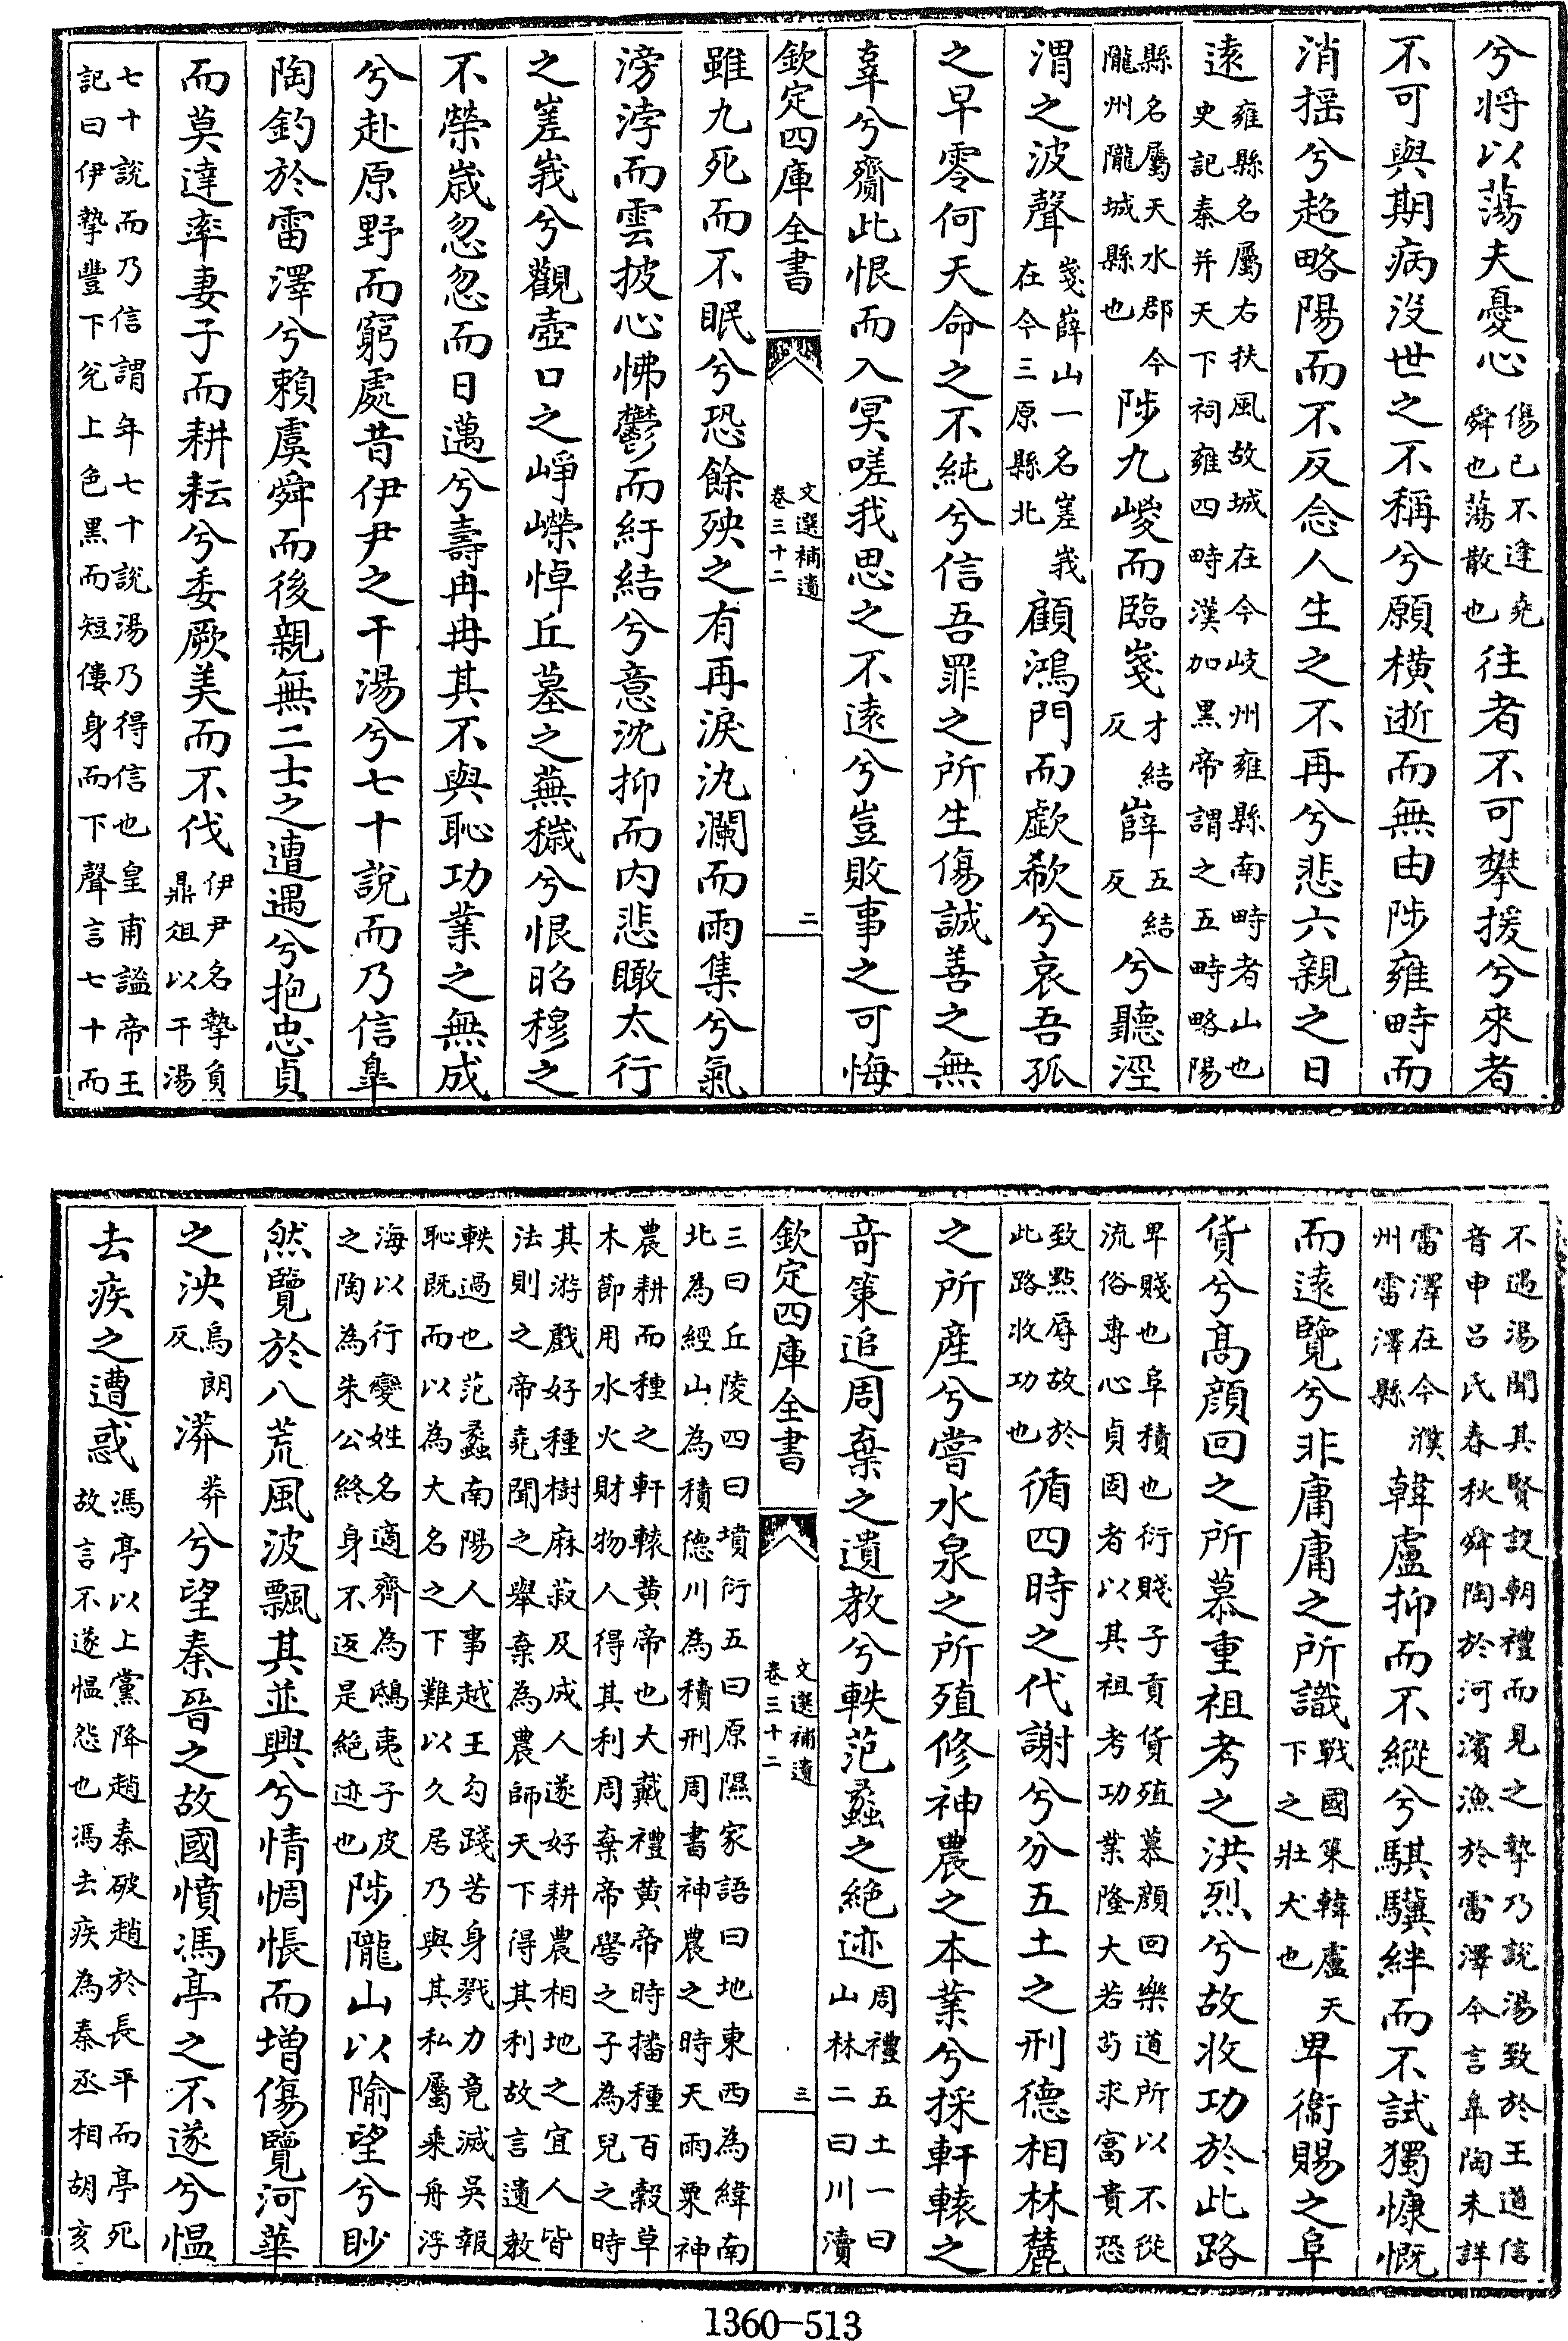 兮將以蕩夫憂心傷已不逢堯舜也蕩散也往者不可攀援兮來者
不可與期病沒世之不稱兮願橫逝而無由陟雍畤而
消揺兮超略陽而不反念人生之不再兮悲六親之日
遠雍縣名屬右扶風故城在今岐州雍縣南畤者山也史記秦并天下祠雍四畤漢加黑帝謂之五畤略陽
縣名屬天水郡今隴州隴城縣也陟九嵕而臨嶻才結反嶭五結反兮聽涇
渭之波聲嶻嶭山一名嵳峩在今三原縣北顧鴻門而歔欷兮哀吾孤
之早零何天命之不純兮信吾罪之所生傷誠善之無
辜兮齎此恨而入冥嗟我思之不遠兮豈敗事之可悔
欽定四庫全書
文選補遺
卷三十二
二
雖九死而不眠兮恐餘殃之有再淚汍瀾而雨集兮氣
滂浡而雲披心怫鬱而紆結兮意沈抑而内悲瞰太行
之嵳峩兮觀壺口之崢嶸悼丘墓之蕪穢兮恨昭穆之
不榮歳忽忽而日邁兮壽冉冉其不與恥功業之無成
兮赴原野而窮處昔伊尹之干湯兮七十說而乃信臯
陶釣於雷澤兮賴虞舜而後親無二士之遭遇兮抱忠貞
而莫達率妻子而耕耘兮委厥美而不伐伊尹名摯負鼎俎以干湯
七十說而乃信謂年七十說湯乃得信也皇甫謐帝王記曰伊摯豐下兊上色黑而短僂身而下聲言七十而
不遇湯聞其賢設朝禮而見之摯乃說湯致於王道信音申吕氏春秋舜陶於河濵漁於雷澤今言臯陶未詳
雷澤在今濮州雷澤縣韓盧抑而不縱兮騏驥絆而不試獨慷慨
而遠覽兮非庸庸之所識戰國策韓盧天下之壯犬也卑衞賜之阜
貨兮髙顔回之所慕重祖考之洪烈兮故收功於此路
卑賤也阜積也衍賤子貢貨殖慕顔回樂道所以不從流俗專心貞固者以其祖考功業隆大若茍求富貴恐
致點辱故於此路收功也循四時之代謝兮分五土之刑德相林麓
之所産兮嘗水泉之所殖修神農之本業兮採軒轅之
竒策追周棄之遺教兮軼范蠡之絶迹周禮五土一曰山林二曰川瀆
欽定四庫全書
文選補遺
卷三十二
三
三曰丘陵四曰墳衍五曰原隰家語曰地東西為緯南北為經山為積德川為積刑周書神農之時天雨粟神
農耕而種之軒轅黄帝也大戴禮黄帝時播種百穀草木節用水火財物人得其利周棄帝嚳之子為兒之時
其游戲好種樹麻菽及成人遂好耕農相地之宜人皆法則之帝堯聞之舉棄為農師天下得其利故言遺教
軼過也范蠡南陽人事越王勾踐苦身戮力竟滅吳報恥既而以為大名之下難以久居乃與其私屬乗舟浮
海以行變姓名適齊為鴟夷子皮之陶為朱公終身不返是絶迹也陟隴山以隃望兮眇
然覽於八荒風波飄其並興兮情惆悵而増傷覽河華
之泱烏朗反漭莽兮望秦晉之故國憤馮亭之不遂兮愠
去疾之遭惑馮亭以上黨降趙秦破趙於長平而亭死故言不遂愠怨也馮去疾為秦丞相胡亥
1360-513